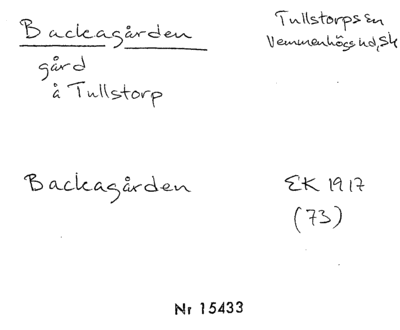 Backagården
Tullstorps sn
Vemmenhögs hd, Sk
gård
å Tullstorp
Backagården
EK 1917
(73)
Nr 15433